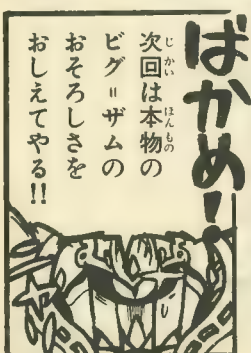 ばかめー!
次回は本物の
ビグ＝ザムの
おそろしさを
おしえてやる!!